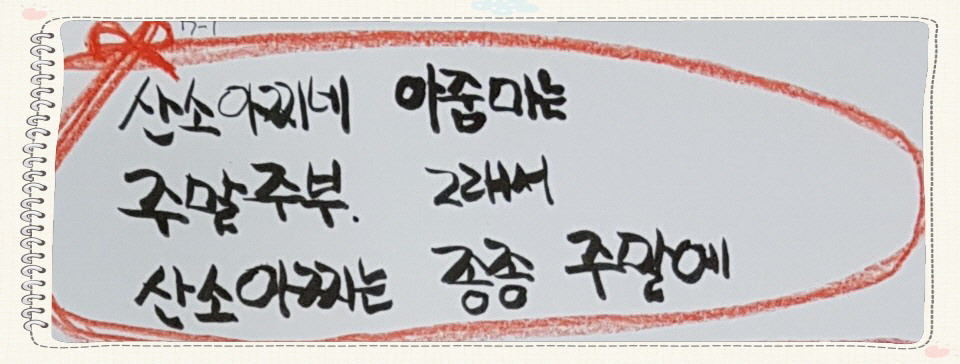 17-1
산소아찌네 아줌마는
주말주부. 그래서
산소아찌는 종종 주말에